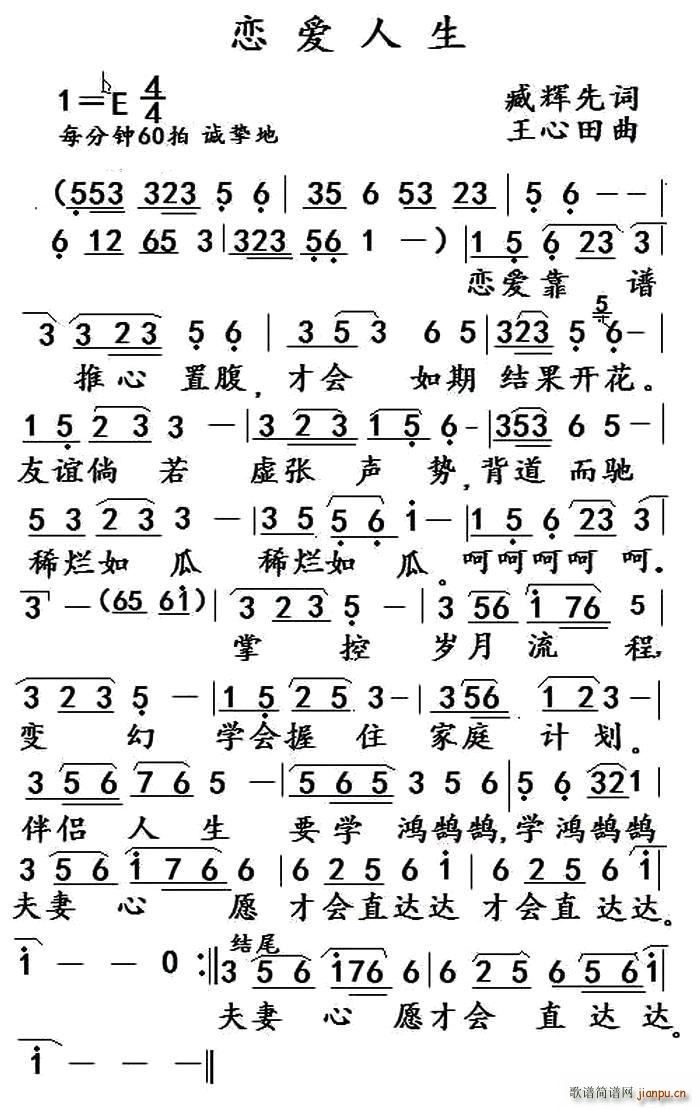 恋爱人生
1=♭E 4/4
臧辉先词
每分钟60拍 诚挚地
王心田曲
(553 323 5 6 | 35 6 53 23 | 5 6 - -
6 12 65 3 | 323 56 1 - ) | 1 5 6 23 | 3
恋爱靠 谱
3 3 2 3 5 6 | 3 5 3 6 5 | 323 5 6 - |
推心 置腹, 才会 如期 结果开花。
1 5 2 3 3 - | 3 2 3 1 5 6 - | 353 6 5 - |
友谊倘 若 虚张 声 势, 背道 而驰
5 3 2 3 3 - | 3 5 5 6 i - | 1 5 6 23 3
稀烂如 瓜 稀烂如 瓜。 呵呵呵呵 呵.
3 - (65 6i) | 3 2 3 5 - | 3 56 i 76 5 |
掌 控 岁月 流 程,
3 2 3 5 - | 1 5 2 5 3 - | 356 1 2 3 - |
变 幻 学会握 住 家庭 计 划。
3 5 6 7 6 5 - | 5 6 5 3 5 6 | 5 6 321 |
伴侣 人 生 要学 鸿鹄鹄, 学鸿鹄鹄
3 5 6 i 7 6 6 | 6 2 5 6 i | 6 2 5 6 i |
夫妻 心 愿 才会直达达 才会直 达达。
结尾
i - - 0 :‖ 3 5 6 i76 6 | 6 2 5 5 6 i |
夫妻 心 愿才会 直达达。
i - - - ‖
歌谱简谱网
jianpu.cn